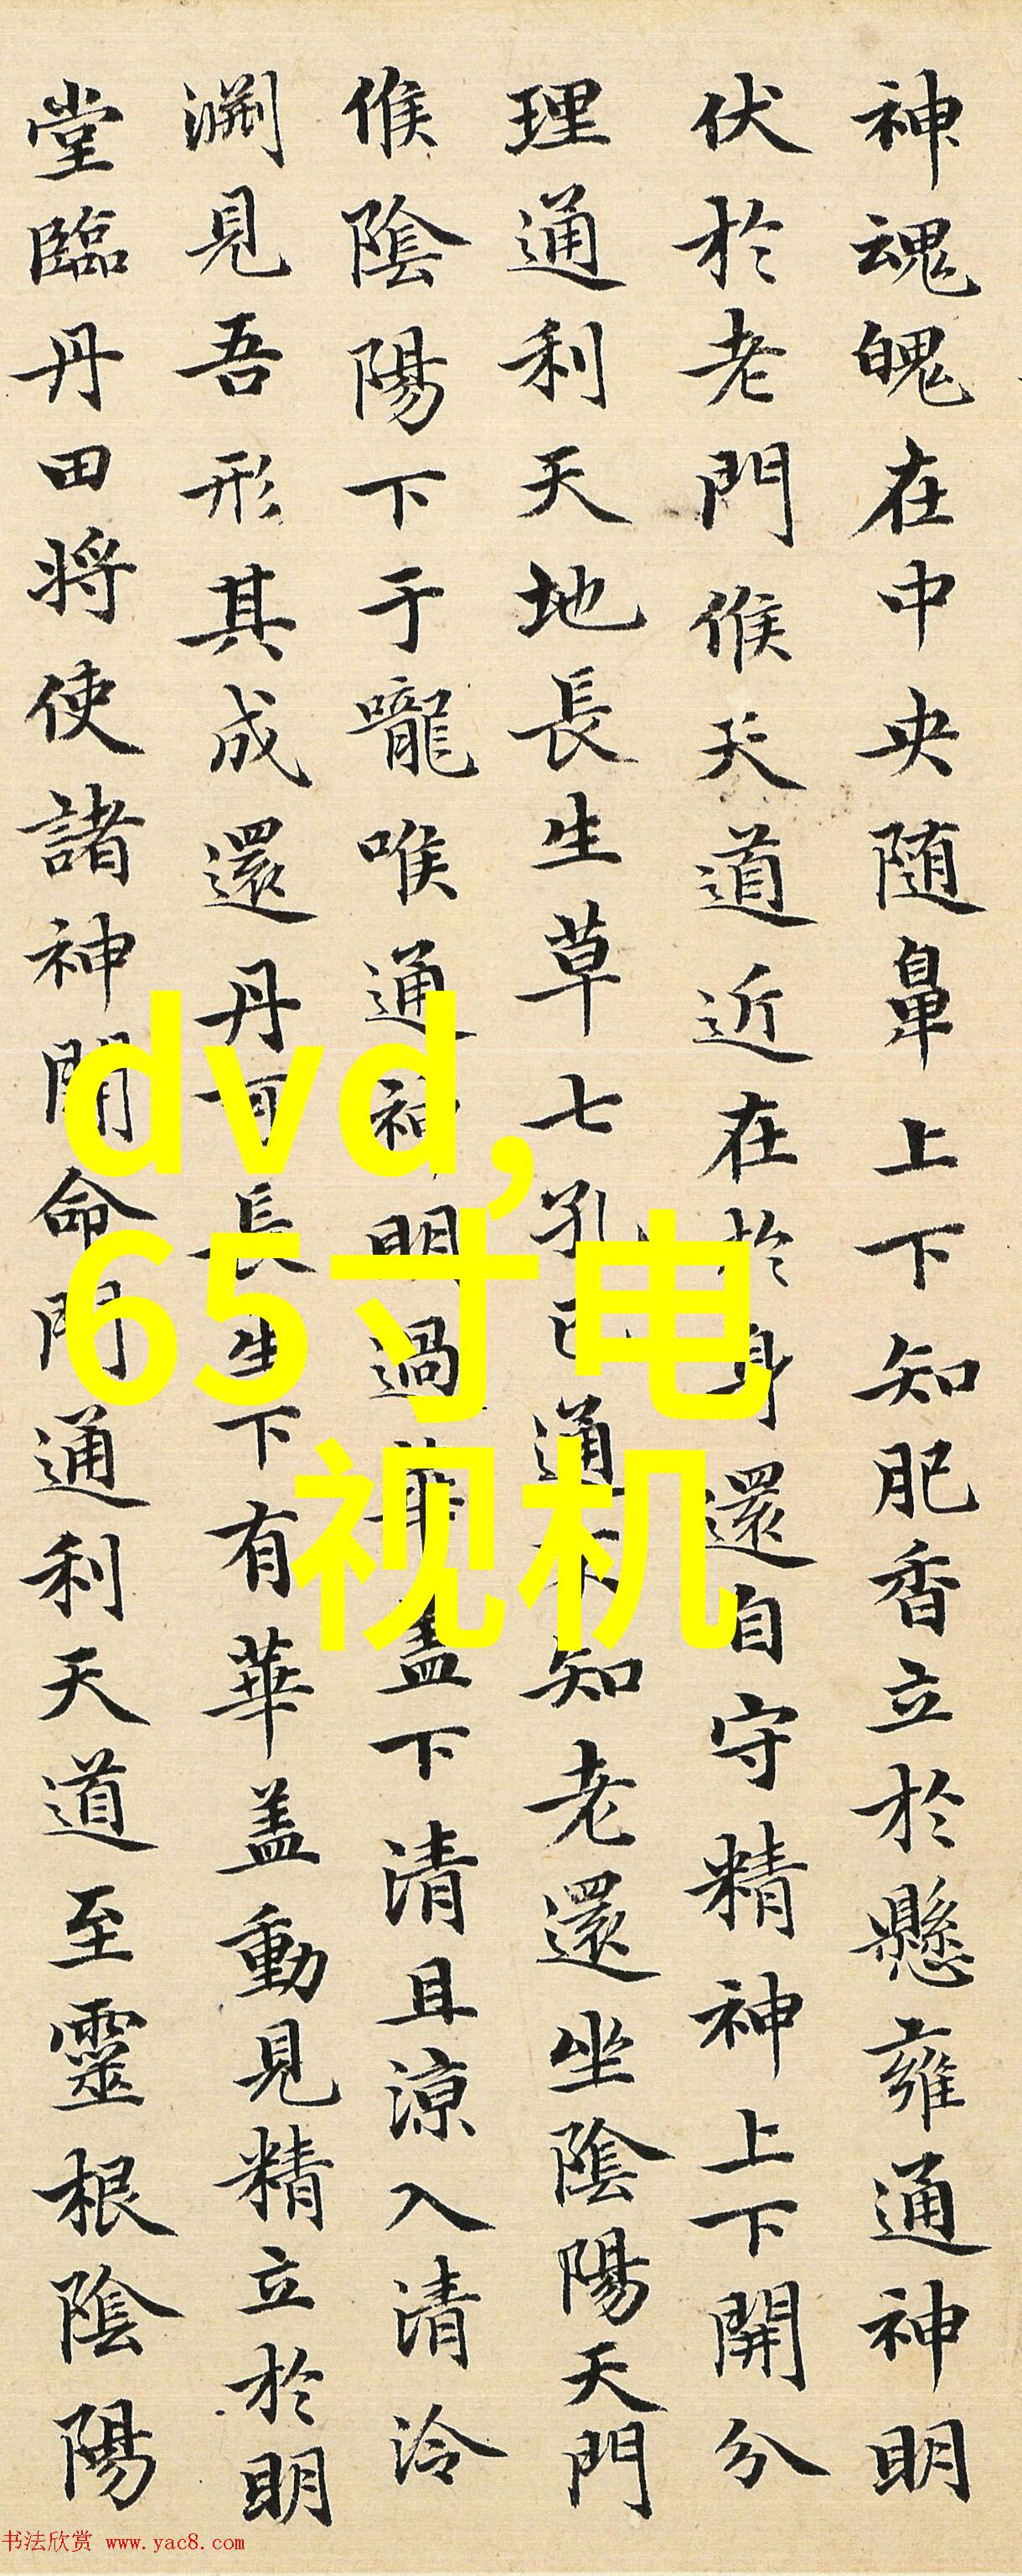 神魂魄在中央随鼻上下知肥香立於懸雍通神明
伏於老門候天道近在於身還自守精神上下開分
理通利天地長生草七孔已通不知老還坐陰陽天門
候陰陽下于嚨喉通神明過華蓋下清且涼入清泠
淵見吾形其成還丹可長生下有華盖動見精立於明
堂臨丹田将使諸神開命門通利天道至靈根陰陽
dvd,
65寸电
视机
书法欣赏 www.yac8.com